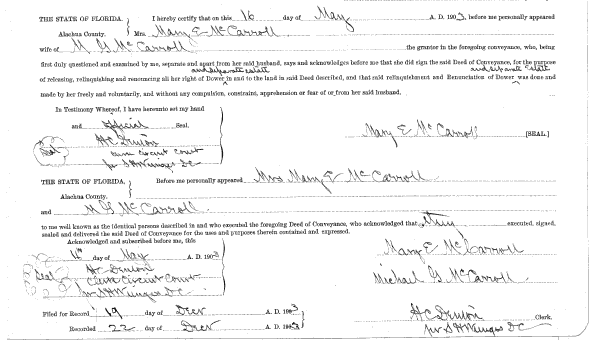 THE STATE OF FLORIDA. I hereby certify that on this 16 day of May A. D. 1903, before me personally appeared
Alachua County. Mrs Mary E McCarroll
wife of M G McCarroll the grantor in the foregoing conveyance, who, being
first duly questioned and examined by me, separate and apart from her said husband, says and acknowledges before me that she did sign the said Deed of Conveyance, for the purpose
and separate estate and separate estate
of releasing, relinquishing and renouncing all her right of Dower in and to the land in said Deed described, and that said relinquishment and Renunciation of Dower was done and
made by her freely and voluntarily, and without any compulsion, constraint, apprehension or fear of or from her said husband.
In Testimony Whereof, I have hereunto set my hand
and official Seal.
Seal HC Denton Mary E McCarroll [SEAL]
Clerk Circuit Court
pr S H Wienges DC
THE STATE OF FLORIDA, Before me personally appeared Mrs Mary E McCarroll
Alachua County.
and M G McCarroll
to me well known as the identical persons described in and who executed the foregoing Deed of Conveyance, who acknowledged that they executed, signed,
sealed and delivered the said Deed of Conveyance for the uses and purposes therein contained and expressed.
Acknowledged and subscribed before me, this
16th day of May A. D. 1903 Mary E McCarroll
Seal HC Denton
Clerk Circuit Court Michael G McCarroll
pr S H Wienges DC
Filed for Record 19 day of Decr A. D. 1903 HC Denton Clerk.
Recorded 22 day of Decr A. D. 1903 pr S H Wienges DC